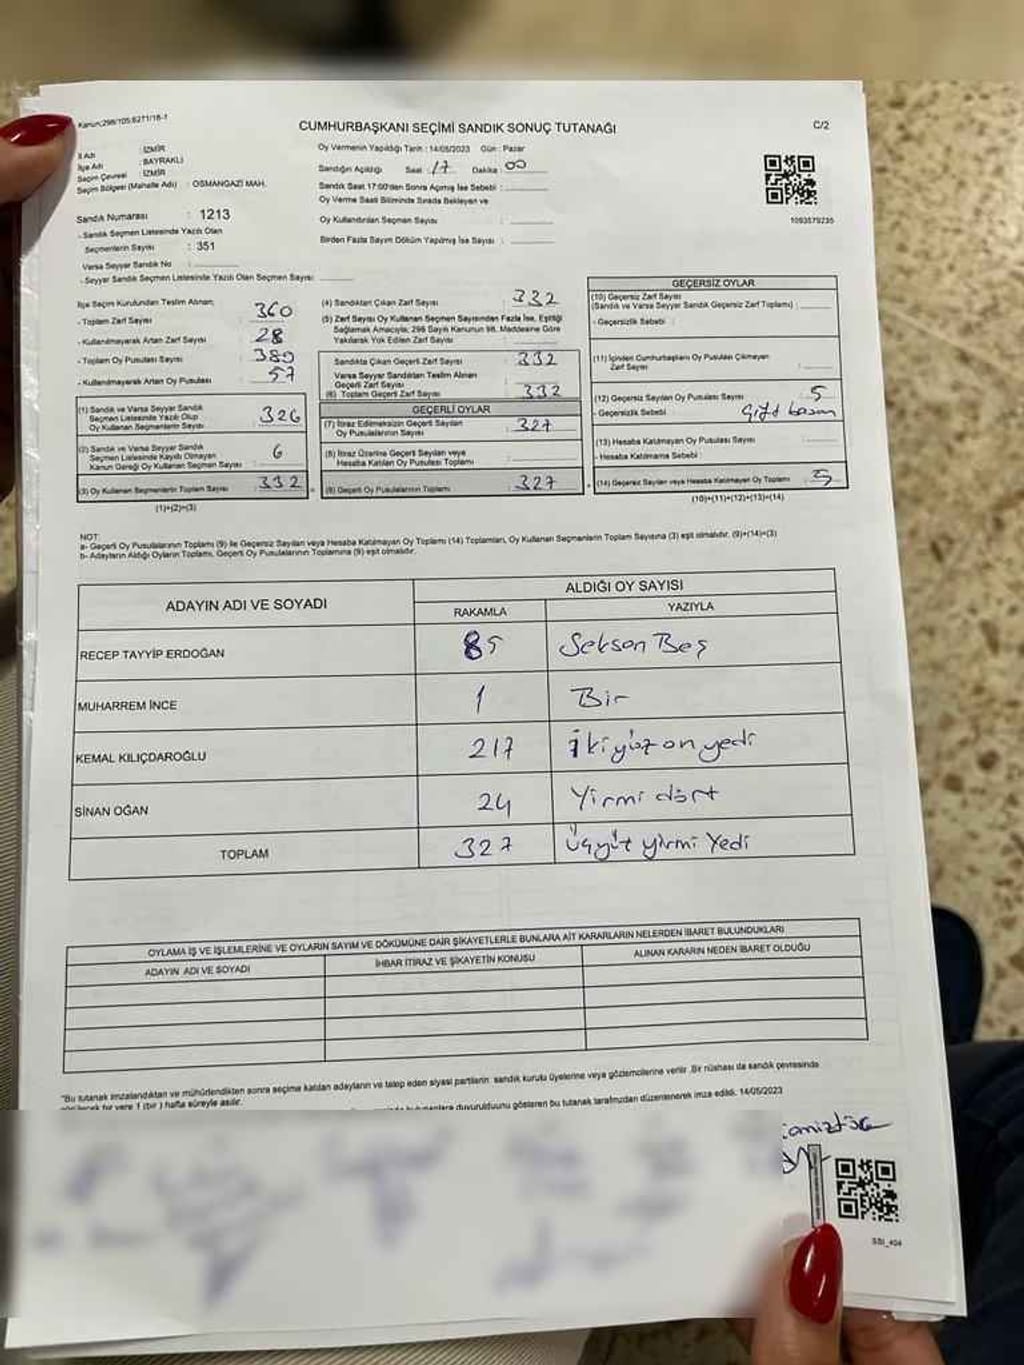 Kanun:298/105;6271/18-1
CUMHURBAŞKANI SEÇİMİ SANDIK SONUÇ TUTANAĞI
C/2
İl Adı : İZMİR
İlçe Adı : BAYRAKLI
Seçim Çevresi : İZMİR
Seçim Bölgesi (Mahalle Adı) : OSMANGAZİ MAH.
Sandık Numarası : 1213
- Sandık Seçmen Listesinde Yazılı Olan
Seçmenlerin Sayısı : 351
Varsa Seyyar Sandık No :
- Seyyar Sandık Seçmen Listesinde Yazılı Olan Seçmen Sayısı:
Oy Vermenin Yapıldığı Tarih : 14/05/2023 Gün : Pazar
Sandığın Açıldığı Saat 17 Dakika : 00
Sandık Saat 17:00'den Sonra Açılmış İse Sebebi :
Oy Verme Saati Bitiminde Sırada Bekleyen ve
Oy Kullandırılan Seçmen Sayısı :
Birden Fazla Sayım Döküm Yapılmış İse Sayısı :
1093579235
İlçe Seçim Kurulundan Teslim Alınan;
- Toplam Zarf Sayısı : 360
- Kullanılmayarak Artan Zarf Sayısı : 28
- Toplam Oy Pusulası Sayısı : 380
- Kullanılmayarak Artan Oy Pusulası : 57
(1) Sandık ve Varsa Seyyar Sandık
Seçmen Listesinde Yazılı Olup
Oy Kullanan Seçmenlerin Sayısı : 326
(2) Sandık ve Varsa Seyyar Sandık
Seçmen Listesinde Kayıtlı Olmayan
Kanun Gereği Oy Kullanan Seçmen Sayısı : 6
(3) Oy Kullanan Seçmenlerin Toplam Sayısı : 332
(1)+(2)=(3)
(4) Sandıktan Çıkan Zarf Sayısı : 332
(5) Zarf Sayısı Oy Kullanan Seçmen Sayısından Fazla İse, Eşitliği
Sağlamak Amacıyla; 298 Sayılı Kanunun 98. Maddesine Göre
Yakılarak Yok Edilen Zarf Sayısı :
Sandıkta Çıkan Geçerli Zarf Sayısı : 332
Varsa Seyyar Sandıktan Teslim Alınan
Geçerli Zarf Sayısı :
(6) Toplam Geçerli Zarf Sayısı : 332
GEÇERLİ OYLAR
(7) İtiraz Edilmeksizin Geçerli Sayılan
Oy Pusulalarının Sayısı : 327
(8) İtiraz Üzerine Geçerli Sayılan veya
Hesaba Katılan Oy Pusulası Toplamı :
(9) Geçerli Oy Pusulalarının Toplamı : 327
GEÇERSİZ OYLAR
(10) Geçersiz Zarf Sayısı
(Sandık ve Varsa Seyyar Sandık Geçersiz Zarf Toplamı) :
- Geçersizlik Sebebi :
(11) İçinden Cumhurbaşkanı Oy Pusulası Çıkmayan
Zarf Sayısı :
(12) Geçersiz Sayılan Oy Pusulası Sayısı : 5
- Geçersizlik Sebebi : Çift basım
(13) Hesaba Katılmayan Oy Pusulası Sayısı :
- Hesaba Katılmama Sebebi :
(14) Geçersiz Sayılan veya Hesaba Katılmayan Oy Toplamı : 5
(10)+(11)+(12)+(13)=(14)
NOT:
a- Geçerli Oy Pusulalarının Toplamı (9) ile Geçersiz Sayılan veya Hesaba Katılmayan Oy Toplamı (14) Toplamları, Oy Kullanan Seçmenlerin Toplam Sayısına (3) eşit olmalıdır. (9)+(14)=(3)
b- Adayların Aldığı Oyların Toplamı, Geçerli Oy Pusulalarının Toplamına (9) eşit olmalıdır.
ADAYIN ADI VE SOYADI
ALDIĞI OY SAYISI
RAKAMLA YAZIYLA
RECEP TAYYİP ERDOĞAN 85 Seksen Beş
MUHARREM İNCE 1 Bir
KEMAL KILIÇDAROĞLU 217 İkiyüz on yedi
SİNAN OĞAN 24 Yirmi dört
TOPLAM 327 Üçyüz yirmi Yedi
OYLAMA İŞ VE İŞLEMLERİNE VE OYLARIN SAYIM VE DÖKÜMÜNE DAİR ŞİKAYETLERLE BUNLARA AİT KARARLARIN NELERDEN İBARET BULUNDUKLARI
ADAYIN ADI VE SOYADI İHBAR İTİRAZ VE ŞİKAYETİN KONUSU ALINAN KARARIN NEDEN İBARET OLDUĞU
"Bu tutanak imzalandıktan ve mühürlendikten sonra seçime katılan adayların ve talep eden siyasi partilerin: sandık kurulu üyelerine veya gözlemcilerine verilir .Bir nüshası da sandık çevresinde
bir yere 1 (bir ) hafta süreyle asılır.
duyurulduğunu gösteren bu tutanak tarafımızdan düzenlenerek imza edildi. 14/05/2023
SSI_404